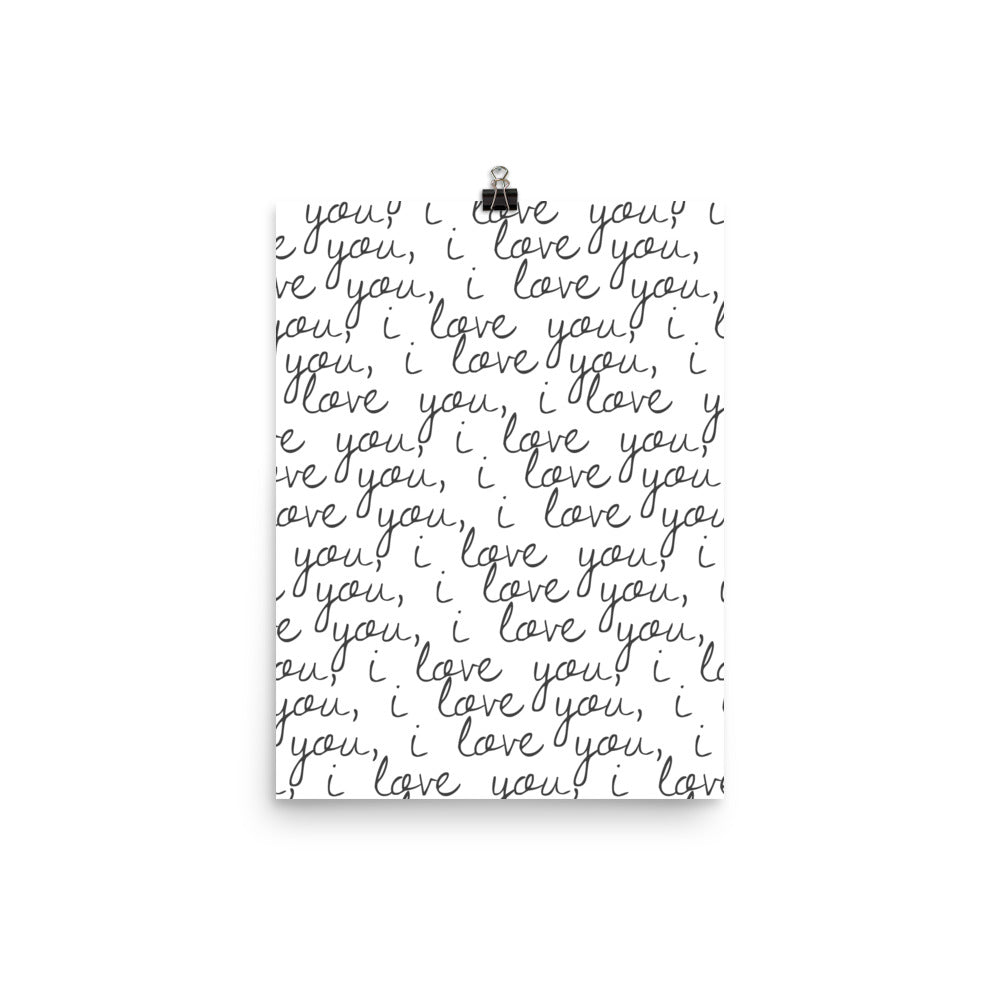 you, i love you, i
e you, i love you,
ve you, i love you,
you, i love you, i l
you, i love you, i
love you, i love y
e you, i love you,
ove you, i love you
ove you, i love you
you, i love you, i
you, i love you, i
e you, i love you,
ou, i love you, i lo
you, i love you, i
you, i love you, i
, i love you, i love